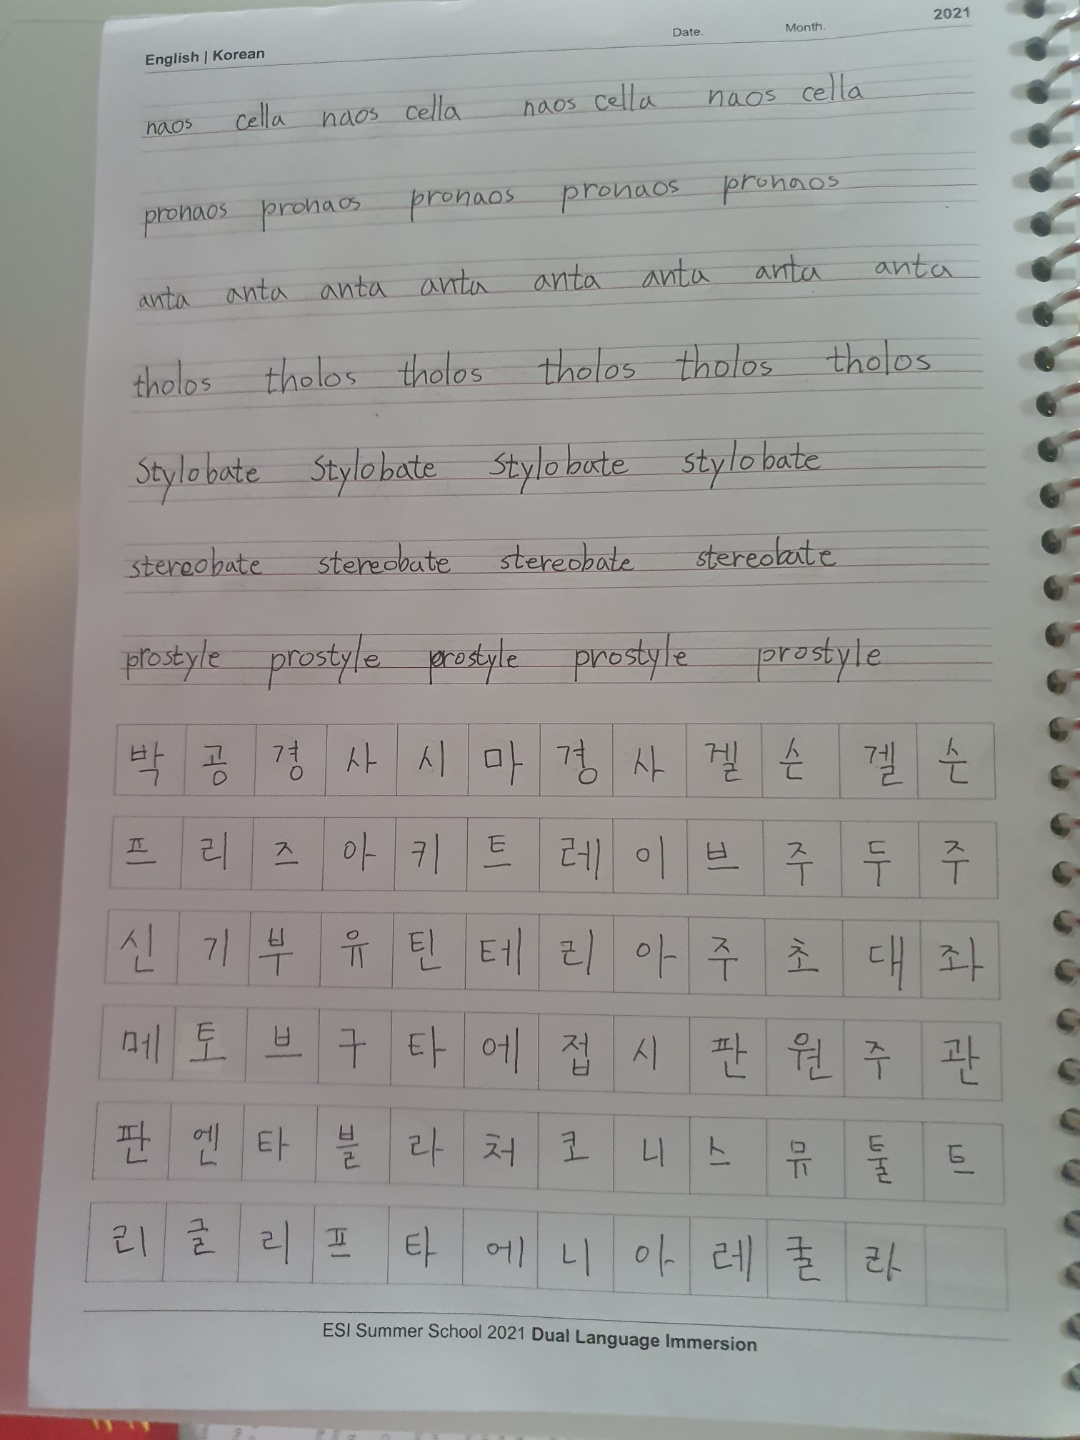 2021
English | Korean Date. Month.
naos cella naos cella naos cella naos cella
pronaos pronaos pronaos pronaos pronaos
anta anta anta anta anta anta anta anta
tholos tholos tholos tholos tholos tholos
Stylobate Stylobate Stylobate stylobate
stereobate stereobate stereobate stereobate
prostyle prostyle prostyle prostyle prostyle
박 공 경 사 시 마 경 사 겔 손 겔 손
프 리 즈 아 키 트 레 이 브 주 두 주
신 기 부 유 틴 테 리 아 주 초 대 좌
메 토 브 구 타 에 접 시 판 원 주 관
판 엔 타 블 라 처 코 니 스 뮤 툴 트
리 글 리 프 타 에 니 아 레 굴 라
ESI Summer School 2021 Dual Language Immersion